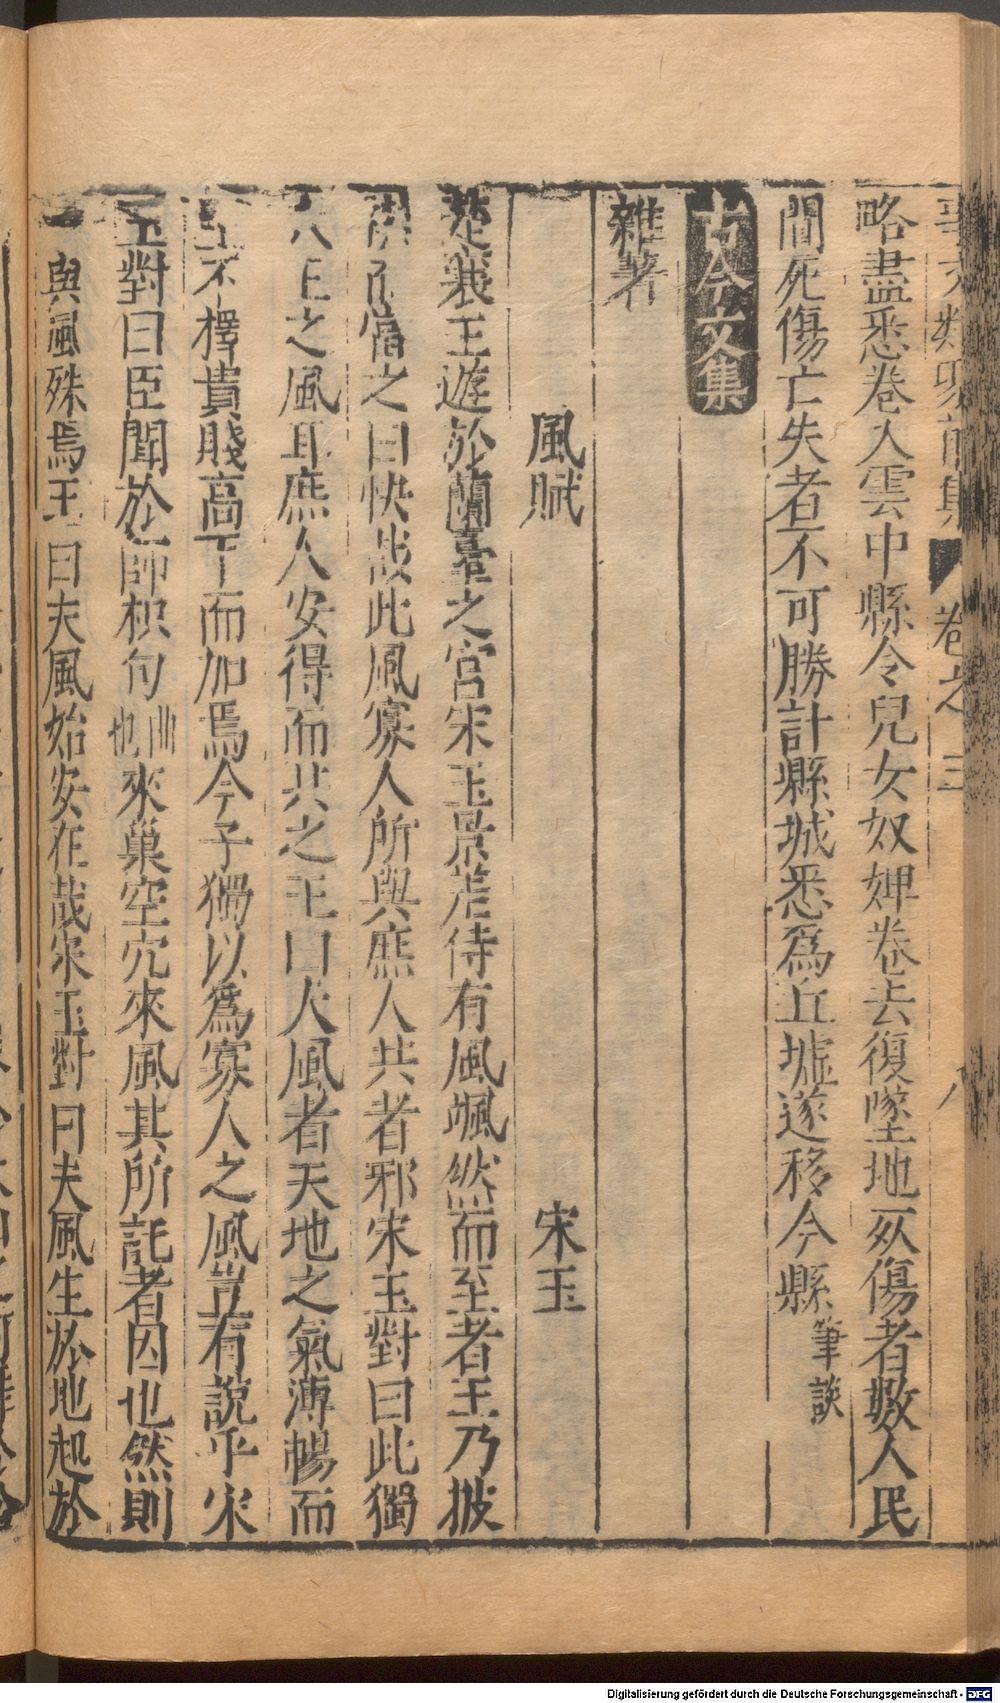 事文類聚前集 卷之三 八
略盡悉卷入雲中縣令兒女奴婢卷去復墜地死傷者數人民
間死傷亡失者不可勝計縣城悉爲丘墟遂移今縣筆談
古今文集
雜著
風賦 宋玉
楚襄王遊於蘭臺之宮宋玉景差侍有風颯然而至者王乃披
襟而當之曰快哉此風寡人所與庶人共者邪宋玉對曰此獨
大王之風耳庶人安得而共之王曰夫風者天地之氣溥暢而
至不擇貴賤高下而加焉今子獨以爲寡人之風豈有說乎宋
玉對曰臣聞於師枳句曲也來巢空穴來風其所託者因也然則
與風殊焉王曰夫風始安在哉宋玉對曰夫風生於地起於
Digitalisierung gefördert durch die Deutsche Forschungsgemeinschaft - DFG